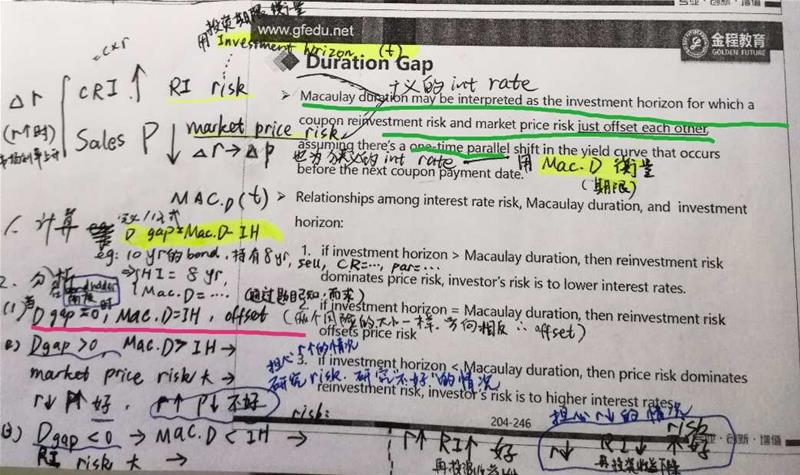 专业·创新·增值
www.gfedu.net
金程教育
GOLDEN FUTURE
Duration Gap
Macaulay duration may be interpreted as the investment horizon for which a
coupon reinvestment risk and market price risk just offset each other,
assuming there's a one-time parallel shift in the yield curve that occurs
before the next coupon payment date.
Relationships among interest rate risk, Macaulay duration, and investment
horizon:
1. if investment horizon > Macaulay duration, then reinvestment risk
dominates price risk, investor's risk is to lower interest rates.
2. if investment horizon = Macaulay duration, then reinvestment risk
offsets price risk
3. if investment horizon < Macaulay duration, then price risk dominates
reinvestment risk, investor's risk is to higher interest rates
204-246
专业·创新·增值
投资期限衡量
用 Investment horizon. (t)
广义的 int rate
=C×r
Δr
(r↑时)
CRI ↑ RI risk
Sales P ↓ market price risk
Δr→Δp
也为广义的 int rate
用 Mac.D 衡量
(期限)
MAC.D(t)
1. 计算
D gap=Mac.D-IH
eg: 10yr的bond, 持有8yr, sell, CR=…, par=…
⇒HI = 8 yr,
Mac.D=…
2. 分析
(1) 当Dgap=0, Mac.D=IH, offset (两个风险的大小一样, 方向相反 ∴ offset)
(2) Dgap>0, Mac.D>IH→
market price risk大→
r↓ P↑ 好, r↑ P↓ 不好
担心r↑的情况
研究risk, 研究"不好"的情况
(3) Dgap<0 → Mac.D<IH →
RI risk大 →
risk:
r↑ RI↑ 好
担心r↓的情况
risk
r↓ RI↓ 不好